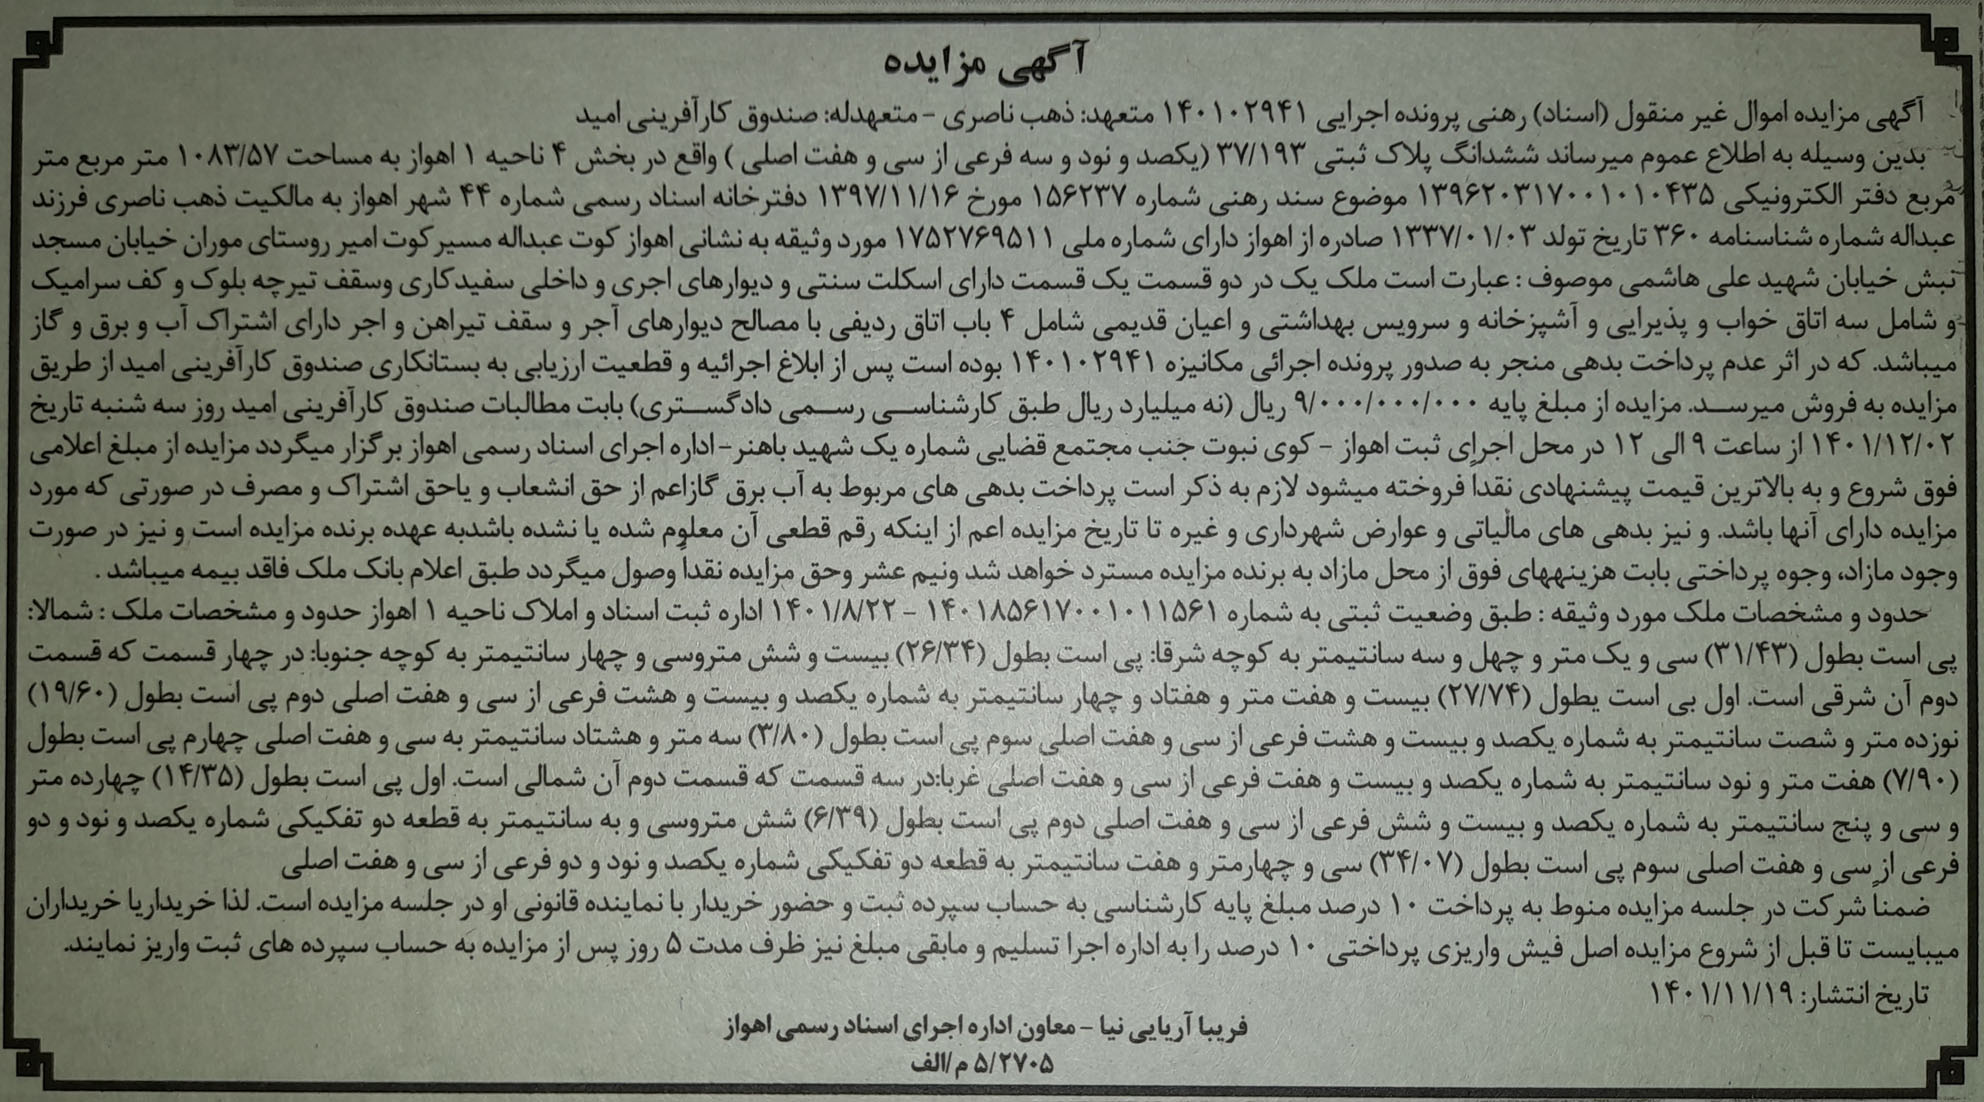 آگهی مزایده
آگهی مزایده اموال غیر منقول (اسناد) رهنی پرونده اجرایی ۱۴۰۱۰۲۹۴۱ متعهد: ذهب ناصری – متعهدله: صندوق کارآفرینی امید
بدین وسیله به اطلاع عموم میرساند ششدانگ پلاک ثبتی ۳۷/۱۹۳ (یکصد و نود و سه فرعی از سی و هفت اصلی ) واقع در بخش ۴ ناحیه ۱ اهواز به مساحت ۱۰۸۳/۵۷ متر مربع متر
مربع دفتر الکترونیکی ۱۳۹۶۲۰۳۱۷۰۰۱۰۱۰۴۳۵ موضوع سند رهنی شماره ۱۵۶۲۳۷ مورخ ۱۳۹۷/۱۱/۱۶ دفترخانه اسناد رسمی شماره ۴۴ شهر اهواز به مالکیت ذهب ناصری فرزند
عبداله شماره شناسنامه ۳۶۰ تاریخ تولد ۱۳۳۷/۰۱/۰۳ صادره از اهواز دارای شماره ملی ۱۷۵۲۷۶۹۵۱۱ مورد وثیقه به نشانی اهواز کوت عبداله مسیر کوت امیر روستای موران خیابان مسجد
نبش خیابان شهید علی هاشمی موصوف : عبارت است ملک یک در دو قسمت یک قسمت دارای اسکلت سنتی و دیوارهای اجری و داخلی سفیدکاری وسقف تیرچه بلوک و کف سرامیک
و شامل سه اتاق خواب و پذیرایی و آشپزخانه و سرویس بهداشتی و اعیان قدیمی شامل ۴ باب اتاق ردیفی با مصالح دیوارهای آجر و سقف تیراهن و اجر دارای اشتراک آب و برق و گاز
میباشد. که در اثر عدم پرداخت بدهی منجر به صدور پرونده اجرائی مکانیزه ۱۴۰۱۰۲۹۴۱ بوده است پس از ابلاغ اجرائیه و قطعیت ارزیابی به بستانکاری صندوق کارآفرینی امید از طریق
مزایده به فروش میرسد. مزایده از مبلغ پایه ۹/۰۰۰/۰۰۰/۰۰۰ ریال (نه میلیارد ریال طبق کارشناسی رسمی دادگستری) بابت مطالبات صندوق کارآفرینی امید روز سه شنبه تاریخ
۱۴۰۱/۱۲/۰۲ از ساعت ۹ الی ۱۲ در محل اجرای ثبت اهواز – کوی نبوت جنب مجتمع قضایی شماره یک شهید باهنر– اداره اجرای اسناد رسمی اهواز برگزار میگردد مزایده از مبلغ اعلامی
فوق شروع و به بالاترین قیمت پیشنهادی نقداً فروخته میشود لازم به ذکر است پرداخت بدهی های مربوط به آب برق گازاعم از حق انشعاب و یاحق اشتراک و مصرف در صورتی که مورد
مزایده دارای آنها باشد. و نیز بدهی های مالیاتی و عوارض شهرداری و غیره تا تاریخ مزایده اعم از اینکه رقم قطعی آن معلوم شده یا نشده باشدبه عهده برنده مزایده است و نیز در صورت
وجود مازاد، وجوه پرداختی بابت هزینههای فوق از محل مازاد به برنده مزایده مسترد خواهد شد ونیم عشر وحق مزایده نقداً وصول میگردد طبق اعلام بانک ملک فاقد بیمه میباشد .
حدود و مشخصات ملک مورد وثیقه : طبق وضعیت ثبتی به شماره ۱۴۰۱۸۵۶۱۷۰۰۱۰۱۱۵۶۱ – ۱۴۰۱/۸/۲۲ اداره ثبت اسناد و املاک ناحیه ۱ اهواز حدود و مشخصات ملک : شمالا:
پی است بطول (۳۱/۴۳) سی و یک متر و چهل و سه سانتیمتر به کوچه شرقا: پی است بطول (۲۶/۳۴) بیست و شش متروسی و چهار سانتیمتر به کوچه جنوبا: در چهار قسمت که قسمت
دوم آن شرقی است. اول بی است یطول (۲۷/۷۴) بیست و هفت متر و هفتاد و چهار سانتیمتر به شماره یکصد و بیست و هشت فرعی از سی و هفت اصلی دوم پی است بطول (۱۹/۶۰)
نوزده متر و شصت سانتیمتر به شماره یکصد و بیست و هشت فرعی از سی و هفت اصلی سوم پی است بطول (۳/۸۰) سه متر و هشتاد سانتیمتر به سی و هفت اصلی چهارم پی است بطول
(۷/۹۰) هفت متر و نود سانتیمتر به شماره یکصد و بیست و هفت فرعی از سی و هفت اصلی غربا:در سه قسمت که قسمت دوم آن شمالی است. اول پی است بطول (۱۴/۳۵) چهارده متر
و سی و پنج سانتیمتر به شماره یکصد و بیست و شش فرعی از سی و هفت اصلی دوم پی است بطول (۶/۳۹) شش متروسی و به سانتیمتر به قطعه دو تفکیکی شماره یکصد و نود و دو
فرعی از سی و هفت اصلی سوم پی است بطول (۳۴/۰۷) سی و چهارمتر و هفت سانتیمتر به قطعه دو تفکیکی شماره یکصد و نود و دو فرعی از سی و هفت اصلی
ضمناً شرکت در جلسه مزایده منوط به پرداخت ۱۰ درصد مبلغ پایه کارشناسی به حساب سپرده ثبت و حضور خریدار با نماینده قانونی او در جلسه مزایده است. لذا خریداریا خریداران
میبایست تا قبل از شروع مزایده اصل فیش واریزی پرداختی ۱۰ درصد را به اداره اجرا تسلیم و مابقی مبلغ نیز ظرف مدت ۵ روز پس از مزایده به حساب سپرده های ثبت واریز نمایند.
تاریخ انتشار: ۱۴۰۱/۱۱/۱۹
فریبا آریایی نیا – معاون اداره اجرای اسناد رسمی اهواز
۵/۲۷۰۵ م/الف